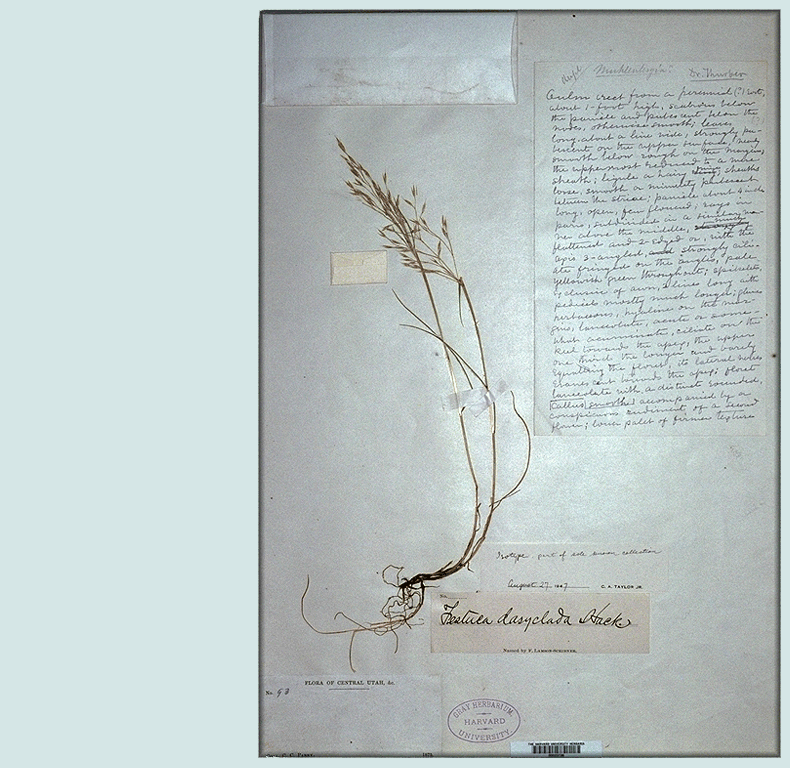 Muhlenbergia? Dr. Thurber
Culm erect from a perennial (?) root,
about 1-foot high, scabrous below
the panicle and pubescent below the
nodes, otherwise smooth; leaves
long about a line wide, strongly pu-
bescent on the upper surface, nearly
smooth below rough on the margins,
the uppermost reduced to a mere
sheath; ligule a hairy ; sheaths
loose, smooth or minutely pubescent
between the striae; panicle about 4 inches
long, open, few flowered; rays in
pairs, subdivided in a similar man-
ner above the middle,
flattened and 2-edged or, with the
apis 3-angled, and strongly cili-
ate fringed on the angles, pale
yellowish green throughout; spikelets,
exclusive of awn, 2 lines long with
pedicels mostly much longer; glumes
herbaceous, hyaline on the mar-
gins, lanceolate, acute or some-
what acuminate, ciliate on the
keel towards the apex, the upper
one third the longer and barely
equalling the floret, its lateral nerves
evanescent toward the apex; floret
lanceolate with a distinct rounded,
(callus) smooth accompanied by a
conspicuous rudiment of a second
flower; lower palet of firmer texture
Isotype, part of sole known collection
August 27 1947 C. A. TAYLOR JR.
No.
Festuca dasyclada Hack.
Named by F. LAMSON-SCRIBNER.
FLORA OF CENTRAL UTAH, &c.
No. 93
GRAY HERBARIUM
HARVARD
UNIVERSITY
THE HARVARD UNIVERSITY HERBARIA
C. C. PARRY. 1875.